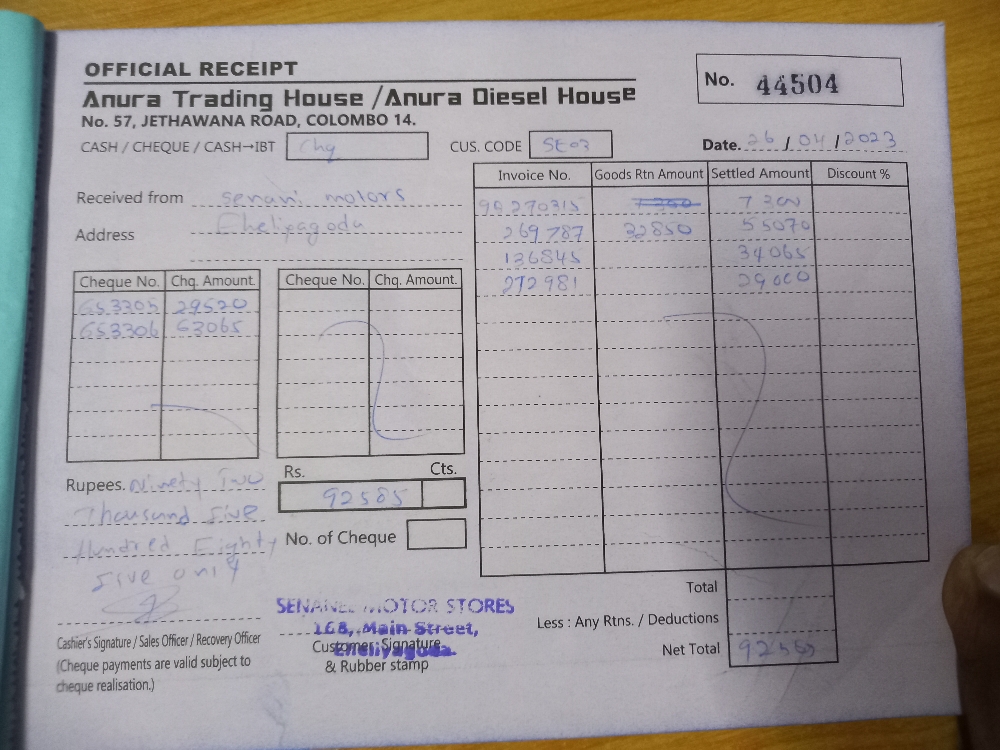 OFFICIAL RECEIPT
No. 44504
Anura Trading House / Anura Diesel House
No. 57, JETHAWANA ROAD, COLOMBO 14.
CASH / CHEQUE / CASH→IBT Chq
CUS. CODE SE03
Date. 26 / 04 / 2023
Received from senani motors
Address Eheliyagoda
Invoice No. Goods Rtn Amount Settled Amount Discount %
90270315 7300 7300
269787 32850 55070
136845 34065
272981 29000
Cheque No. Chq. Amount. Cheque No. Chq. Amount.
653305 29520
653306 63065
Rupees. Ninety Two
Thousand five
Hundred Eighty
five only
Rs. Cts.
92585
No. of Cheque
Cashier's Signature / Sales Officer / Recovery Officer
(Cheque payments are valid subject to
cheque realisation.)
MOTOR STORES
168, Main Street,
Eheliyagoda.
Customer Signature
& Rubber stamp
Total
Less : Any Rtns. / Deductions
Net Total 92585